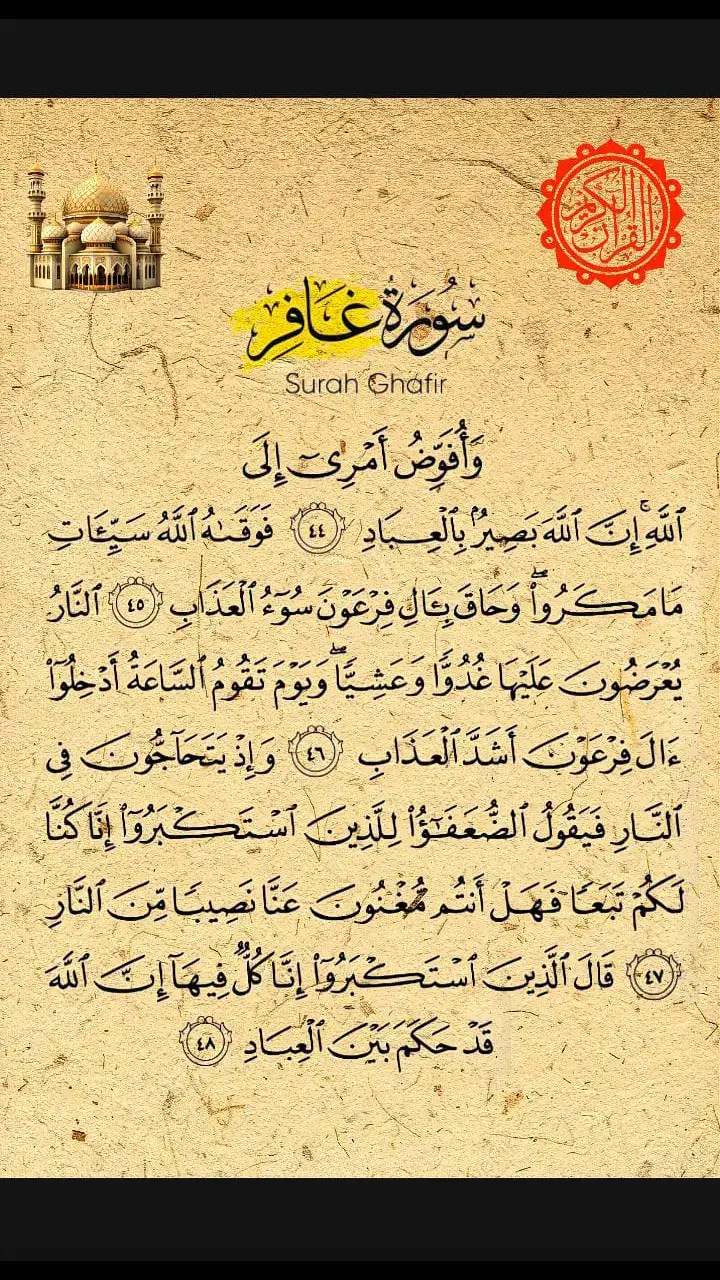 القرآن الكريم
سُورَةُ غَافِرٍ
Surah Ghafir
وَأُفَوِّضُ أَمْرِىٓ إِلَى
ٱللَّهِ ۚ إِنَّ ٱللَّهَ بَصِيرٌۢ بِٱلْعِبَادِ ٤٤ فَوَقَىٰهُ ٱللَّهُ سَيِّـَٔاتِ
مَا مَكَرُوا۟ ۖ وَحَاقَ بِـَٔالِ فِرْعَوْنَ سُوٓءُ ٱلْعَذَابِ ٤٥ ٱلنَّارُ
يُعْرَضُونَ عَلَيْهَا غُدُوًّا وَعَشِيًّا ۖ وَيَوْمَ تَقُومُ ٱلسَّاعَةُ أَدْخِلُوٓا۟
ءَالَ فِرْعَوْنَ أَشَدَّ ٱلْعَذَابِ ٤٦ وَإِذْ يَتَحَآجُّونَ فِى
ٱلنَّارِ فَيَقُولُ ٱلضُّعَفَـٰٓؤُا۟ لِلَّذِينَ ٱسْتَكْبَرُوٓا۟ إِنَّا كُنَّا
لَكُمْ تَبَعًا فَهَلْ أَنتُم مُّغْنُونَ عَنَّا نَصِيبًا مِّنَ ٱلنَّارِ
٤٧ قَالَ ٱلَّذِينَ ٱسْتَكْبَرُوٓا۟ إِنَّا كُلٌّ فِيهَآ إِنَّ ٱللَّهَ
قَدْ حَكَمَ بَيْنَ ٱلْعِبَادِ ٤٨